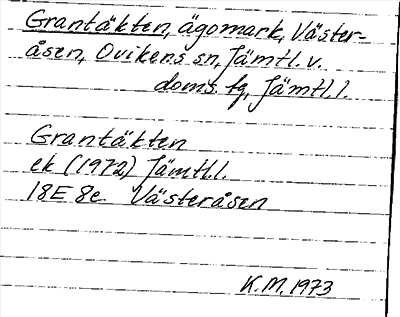 Grantäkten, ägomark, Väster-
åsen, Ovikens sn, Jämtl. v.
doms. fg, Jämtl. l.
Grantäkten
ek (1972) Jämtl.l.
18E 8e Västeråsen
K.M. 1973